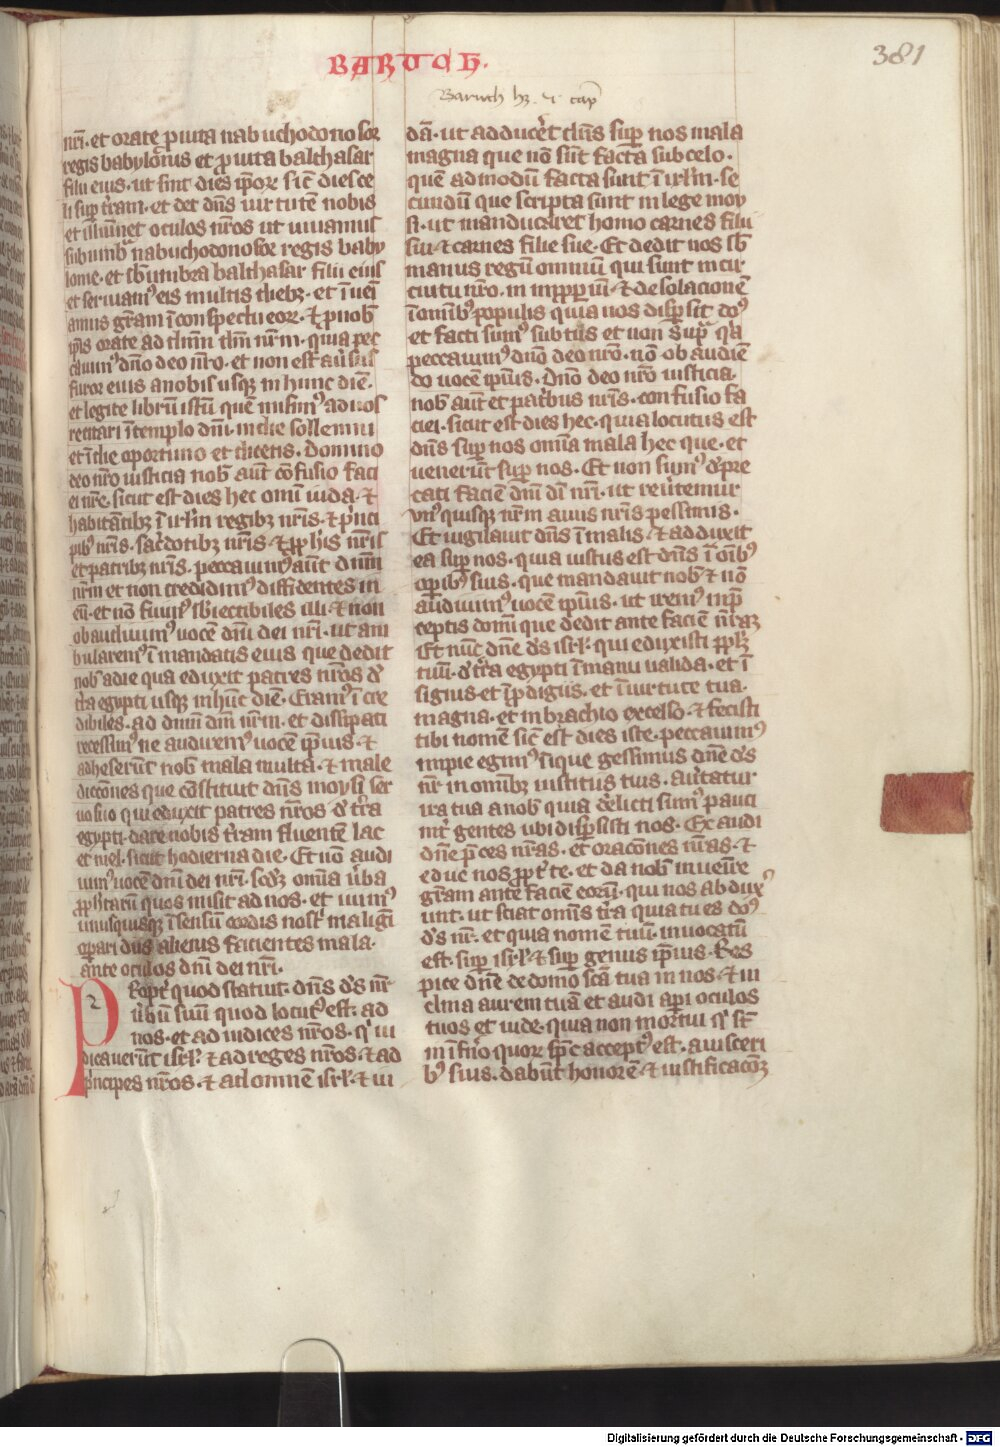 BARUCH.
381
Baruch hꝫ. vi cap̄
nr̄i. et orate p̱ uita nabuchodonosor
regis babylonis et p̱ uita balthasar
filii eius. ut sint dies ip̄oꝝ sic̄ dies ce
li sup̱ t̄ram. et det dn̄s uirtutē nobis
et illuminet oculos nr̄os ut uiuamus
sub umb̄ nabuchodonosor regis baby
lonie. et sb̄ umbra balthasar filii eius
et seruiam᷒ eis multis diebꝫ. et ī ueī
amus gr̄am ī conspectu eoꝝ. ⁊ p̱ nob̄
ip̄is orate ad dn̄m dm̄ nr̄m. quia pec
cauim᷒ dn̄o deo nr̄o. et non est au͛sus
furor eius a nobis usqꝫ in hunc diē.
et legite librū istū quē misim᷒ ad uos
recitari ī templo dn̄i. in die sollemni
et ī die oportuno et dicetis. Domino
deo nr̄o iusticia nob̄ aut̄ cō fusio faci
ei nr̄e. sicut est dies hec omī iuda. ⁊
habitātibꝫ ī irl̄m regibꝫ nr̄is. ⁊ p͛nci
pib᷒ nr̄is. sac͛dotibꝫ nr̄is. ⁊ p̱p̱his nr̄is
et patribꝫ nr̄is. peccauim᷒ aut̄ dn̄m
nr̄m et non credidim᷒ diffidentes in
eū. et nō fuim᷒ sb̄iectibiles illi. ⁊ non
obaudiuim᷒ uocē dn̄i dei nr̄i. ut am
bularem᷒ ī mandatis eius que dedit
nob̄ a die qua eduxit patres nr̄os d͛
t͛ra egypti usqꝫ in hūc diē. Eram᷒ ī cre
dibiles. ad dn̄m dm̄ nr̄m. et dissipati
recessim᷒ ne audirem᷒ uocē ip̄ius. ⁊
adheserūt nob̄ mala multa. ⁊ male
dictōnes que cōstituit dn̄s moysi ser
uo suo qui eduxit patres nr̄os d͛ t͛ra
egypti. dare nobis t͛ram fluentē lac
et mel. sicut hodierna die. Et nō audi
uim᷒ uocē dn̄i dei nr̄i. scd̄ꝫ omīa u͛ba
p̱p̱hetarū quos misit ad nos. et iuim᷒
unusquisqꝫ ī sensū cordis nost͛ malignī
op̱ari diis alienis facientes mala.
ante oculos dn̄i dei nr̄i.
2
Propt͛ quod statuit. dn̄s d̄s nr̄
u͛bū suū quod locut᷒ est. ad
nos. et ad iudices nr̄os. q͛ iu
dicauerūt isrl̄. ⁊ ad reges nr̄os. ⁊ ad
p͛ncipes nr̄os. ⁊ ad omnē isrl̄. ⁊ iu
dā. ut adducēt dn̄s sup̱ nos mala
magna que nō sūt facta sub celo.
quē admodū facta sunt ī irl̄m. se
cundū que scripta sunt in lege moy
si. ut manducaret homo carnes filii
sui. ⁊ carnes filie sue. Et dedit nos sb̄
manus regū omniū qui sunt in cir
cuitu nr̄o. in inp̱p̱iū. ⁊ desolacionē
ī omīb᷒ populis quia nos disp̱sit do᷒
et facti sum᷒ subtus et non supra qͣ
peccauim᷒ dn̄o deo nr̄o. nō obaudiē
do uocē ipsius. Dn̄o deo nr̄o iusticia.
nob̄ aut̄ et patribus nr̄is. confusio fa
ciei. sicut est dies hec. quia locutus est
dn̄s sup̱ nos omīa mala hec que. et
uenerūt sup̱ nos. Et non sum᷒ d͛pre
cati faciē dn̄i di nr̄i. ut reu͛temur
vn᷒ quisqꝫ nr̄m a uiis nr̄is pessimis.
Et uigilauit dn̄s ī malis. ⁊ adduxit
ea sup̱ nos. quia iustus est dn̄s ī oīb᷒
op̱ib᷒ suis. que mandauit nob̄ ⁊ nō
audiuim᷒ uocē ipsius. ut irem᷒ in p̄
ceptis domī que dedit ante faciē nr̄aꝫ
Et nūc dn̄e d̄s isrl̄. qui eduxisti pp̱lꝫ
tuū. d͛ t͛ra egypti ī manu ualida. et ī
signis. et ī p̱digiis. et ī uirtute tua.
magna. et in brachio excelso. ⁊ fecisti
tibi nomē sic̄ est dies iste. peccauim᷒
impie egim᷒ iique gessimus dn̄e d̄s
nr̄ in omībꝫ iusticiis tuis. au͛tatur
ira tua a nob̄ quia d͛relicti sum᷒ pauci
int͛ gentes ubi disp̱sisti nos. Exaudi
dn̄e p̄ces nr̄as. et oracōnes nr̄as. ⁊
educ nos p̱pt͛ te. et da nob̄ inuenīre
gr̄am ante faciē eoꝝ. qui nos abdux᷒
unt. ut sciat omīs t͛ra quia tu es do᷒
d̄s nr̄. et quia nomē tuū inuocatū
est. sup̱ isrl̄. ⁊ sup̱ genus ip̄ius. Res
pice dn̄e de domo scā tua in nos. ⁊ in
clina aurem tuā et audi ap̱i oculos
tuos et uide. quia non mortui q͛ st̄
in īf͛no quoꝝ sp̄c accept᷒ est. a uisceri
b᷒ suis. dabūt honorē. ⁊ iustificacōꝫ
Digitalisierung gefördert durch die Deutsche Forschungsgemeinschaft - DFG